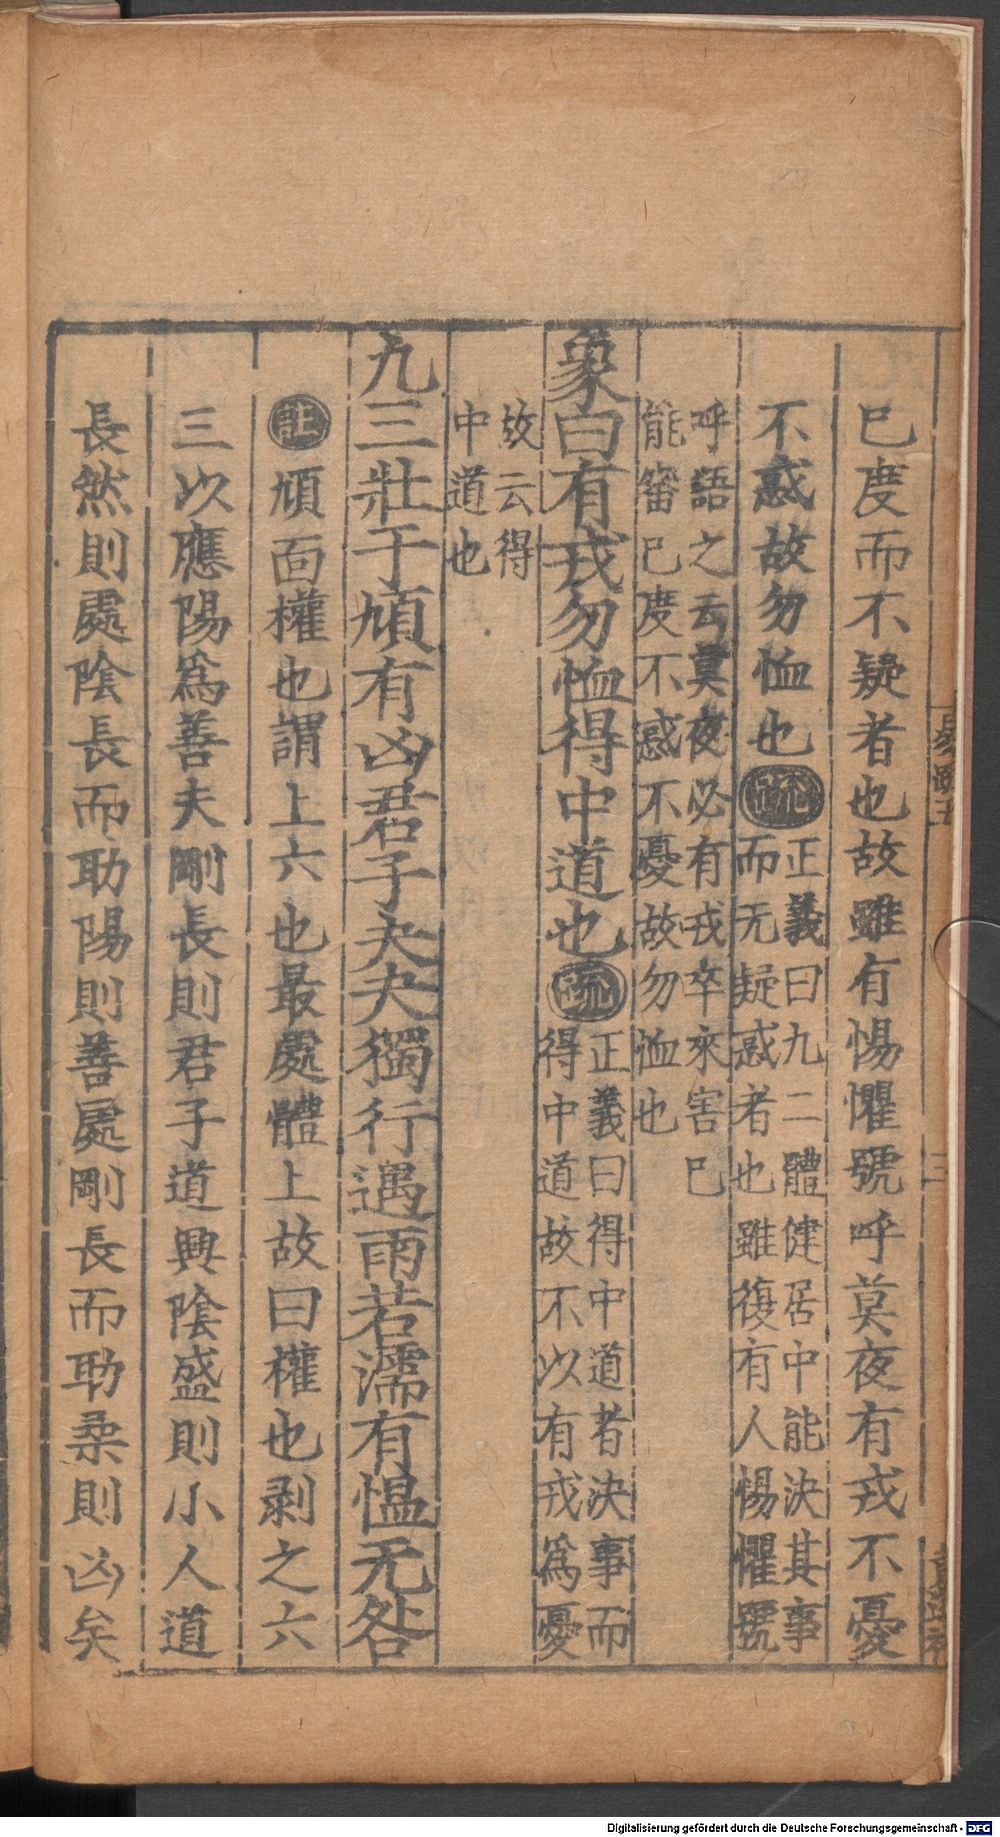 巳度而不疑者也故雖有惕懼號呼莫夜有戎不憂
不惑故勿恤也疏正義曰九二體健居中能決其事
而无疑惑者也雖復有人惕懼號
呼語之云莫夜必有戎卒來害巳
能審巳度不惑不憂故勿恤也
象曰有戎勿恤得中道也疏正義曰得中道者決事而
得中道故不以有戎爲憂
故云得
中道也
九三壯于頄有凶君子夬夬獨行遇雨若濡有愠无咎
註頄面權也謂上六也最處體上故曰權也剥之六
三以應陽爲善夫剛長則君子道興陰盛則小人道
長然則處陰長而助陽則善處剛長而助柔則凶矣
Digitalisierung gefördert durch die Deutsche Forschungsgemeinschaft - DFG